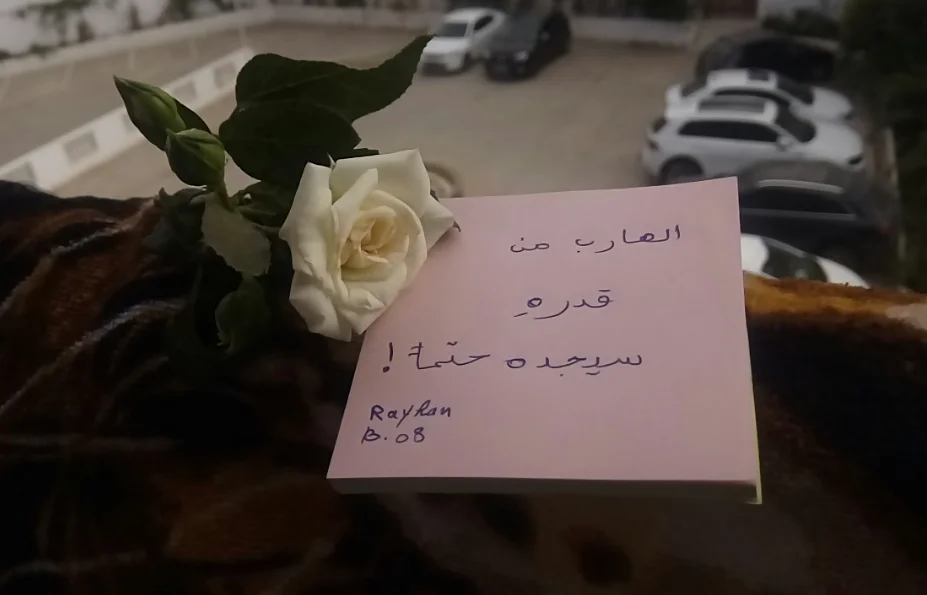 الهارب من
قدرهِ
سيجده حتماً!
Rayhan
B.08